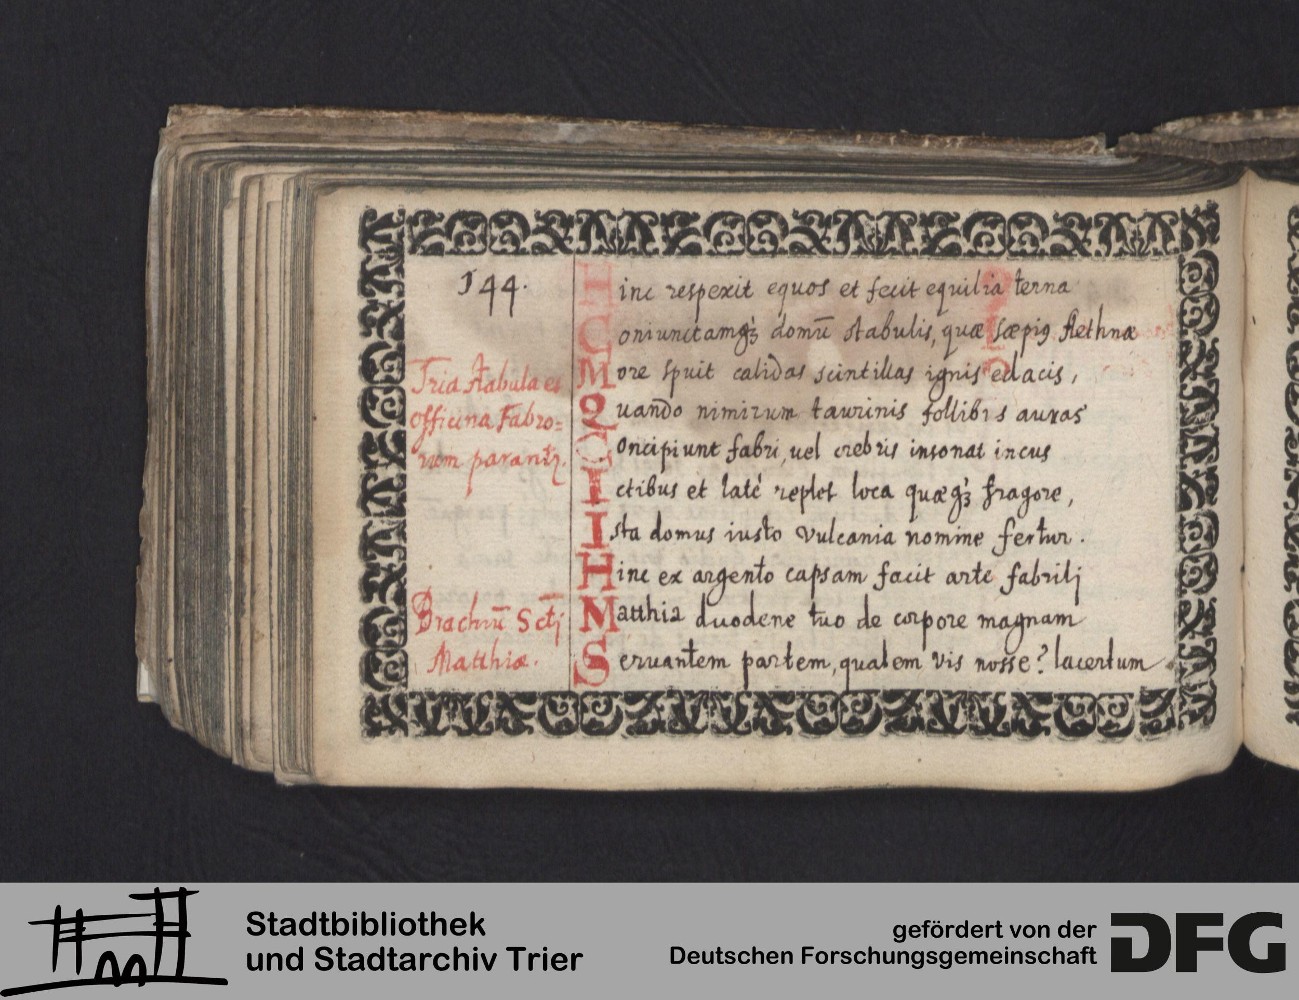 144.
Tria stabula et
officina Fabro=
rum parantr.
Brachiū Sctj
Matthiæ.
Hinc respexit equos et fecit equilia terna
Coniunctamqȝ domū stabulis, quæ sæpiꝰ Aethnæ
More spuit calidas scintillas ignis edacis,
Quando nimirum taurinis follibis auras
Concipiunt fabri, uel crebris insonat incus
Ictibus et laté replet loca quæqȝ fragore,
Ista domus iusto Vulcania nomine fertur.
Hinc ex argento capsam facit arte fabrilj
Matthia duodene tuo de corpore magnam
Seruantem partem, qualem vis nosse? lacertum
Stadtbibliothek
und Stadtarchiv Trier
gefördert von der
Deutschen Forschungsgemeinschaft
DFG